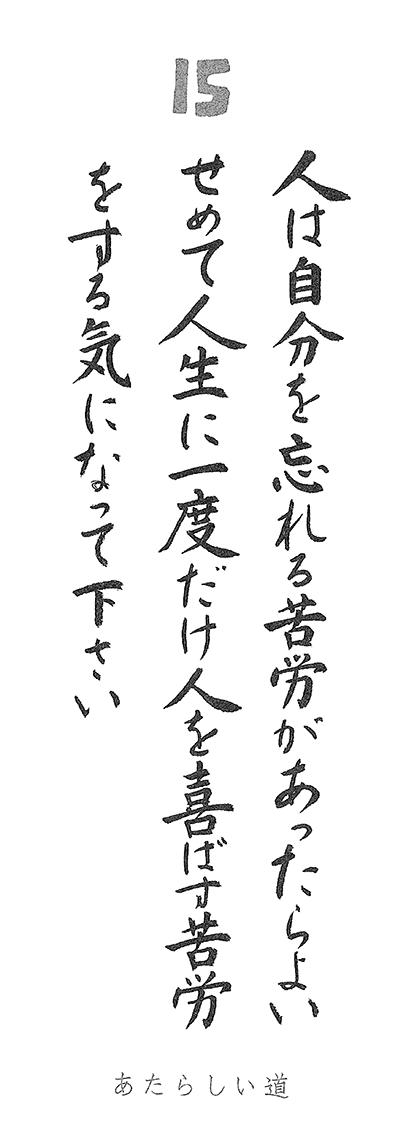 15
人は自分を忘れる苦労があったらよい
せめて人生に一度だけ人を喜ばす苦労
をする気になって下さい
あたらしい道